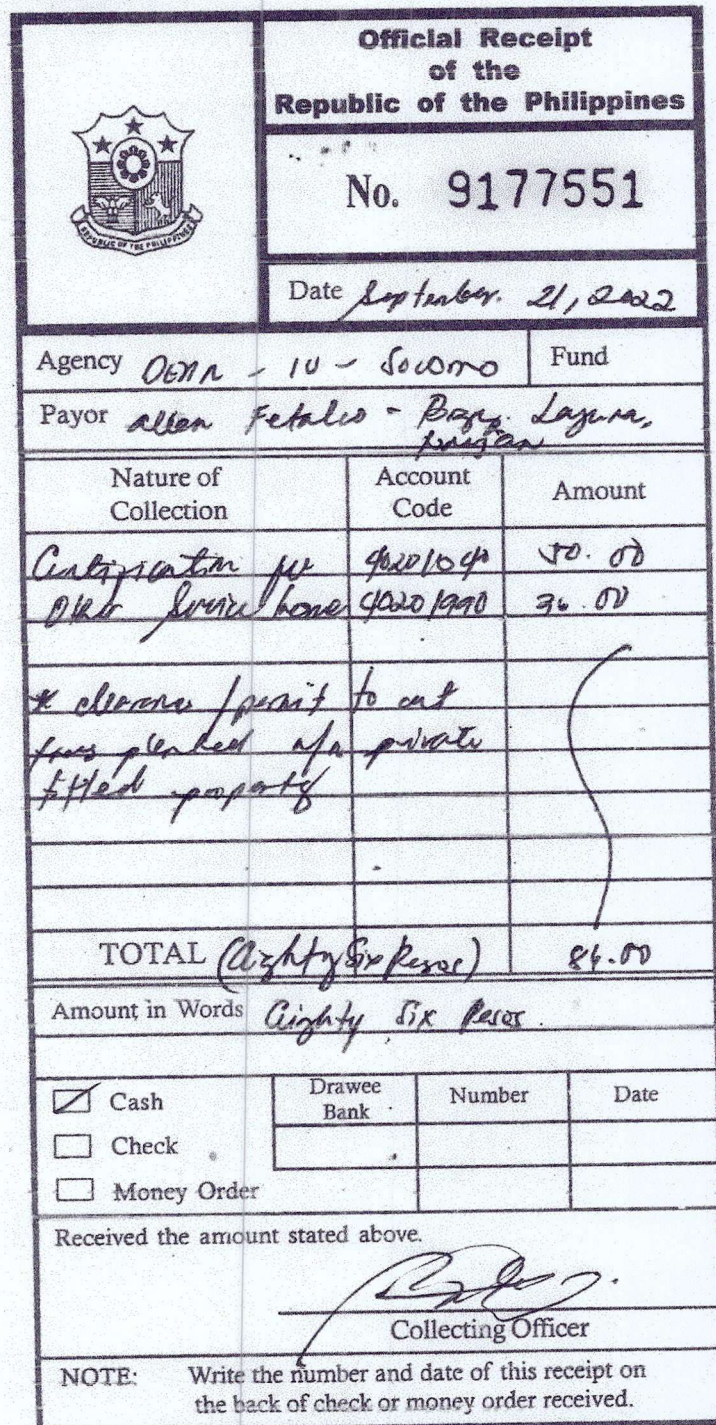 Official Receipt
of the
Republic of the Philippines
REPUBLIC OF THE PHILIPPINES
No. 9177551
Date September. 21, 2022
Agency DENR - IV -
Fund
Payor Allen - Brgy. Laguna,
Nature of Collection
Account Code
Amount
Certification fee 40201040 50.00
Other Service Income 40201990 36.00
* clearance / permit to cut
trees planted w/n private
titled property
TOTAL (Eighty Six Pesos) 86.00
Amount in Words Eighty Six Pesos.
Cash
Drawee Bank
Number
Date
Check
Money Order
Received the amount stated above.
Collecting Officer
NOTE: Write the number and date of this receipt on
the back of check or money order received.